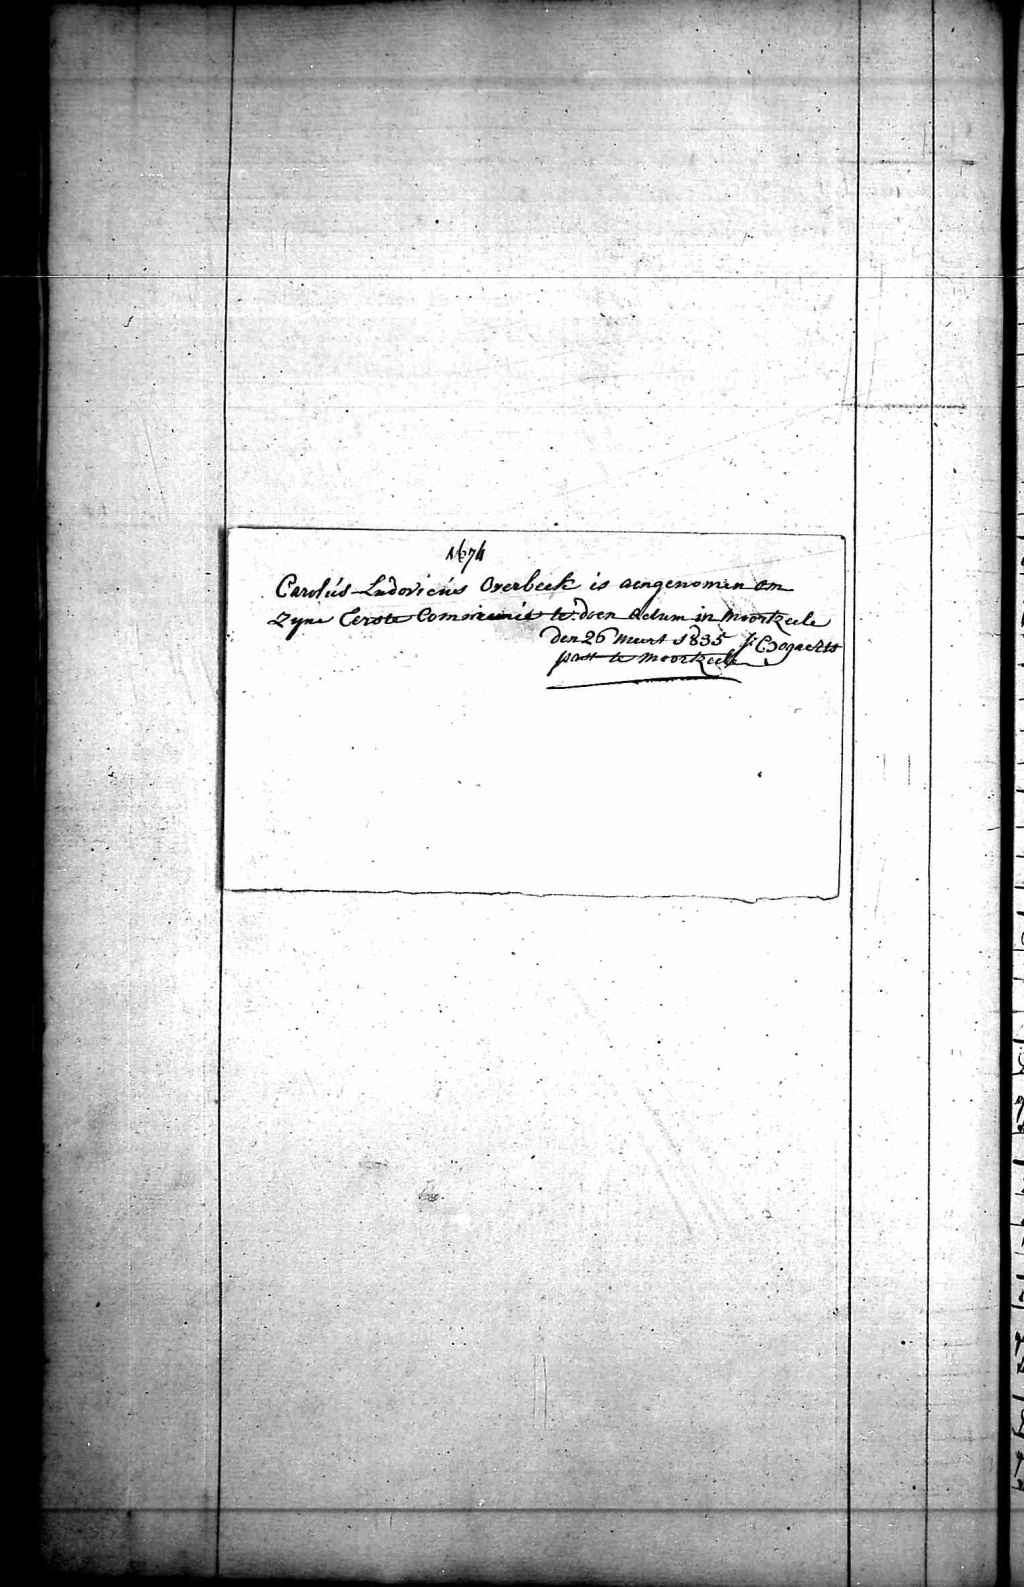 № 74
Carolus-Ludovicus Overbeek is aengenomen om
Zyne Eerste Communie te doen Actum in Moorkeele
den 26 Meert 1835 J: Bogaerts
past te Moorkeele